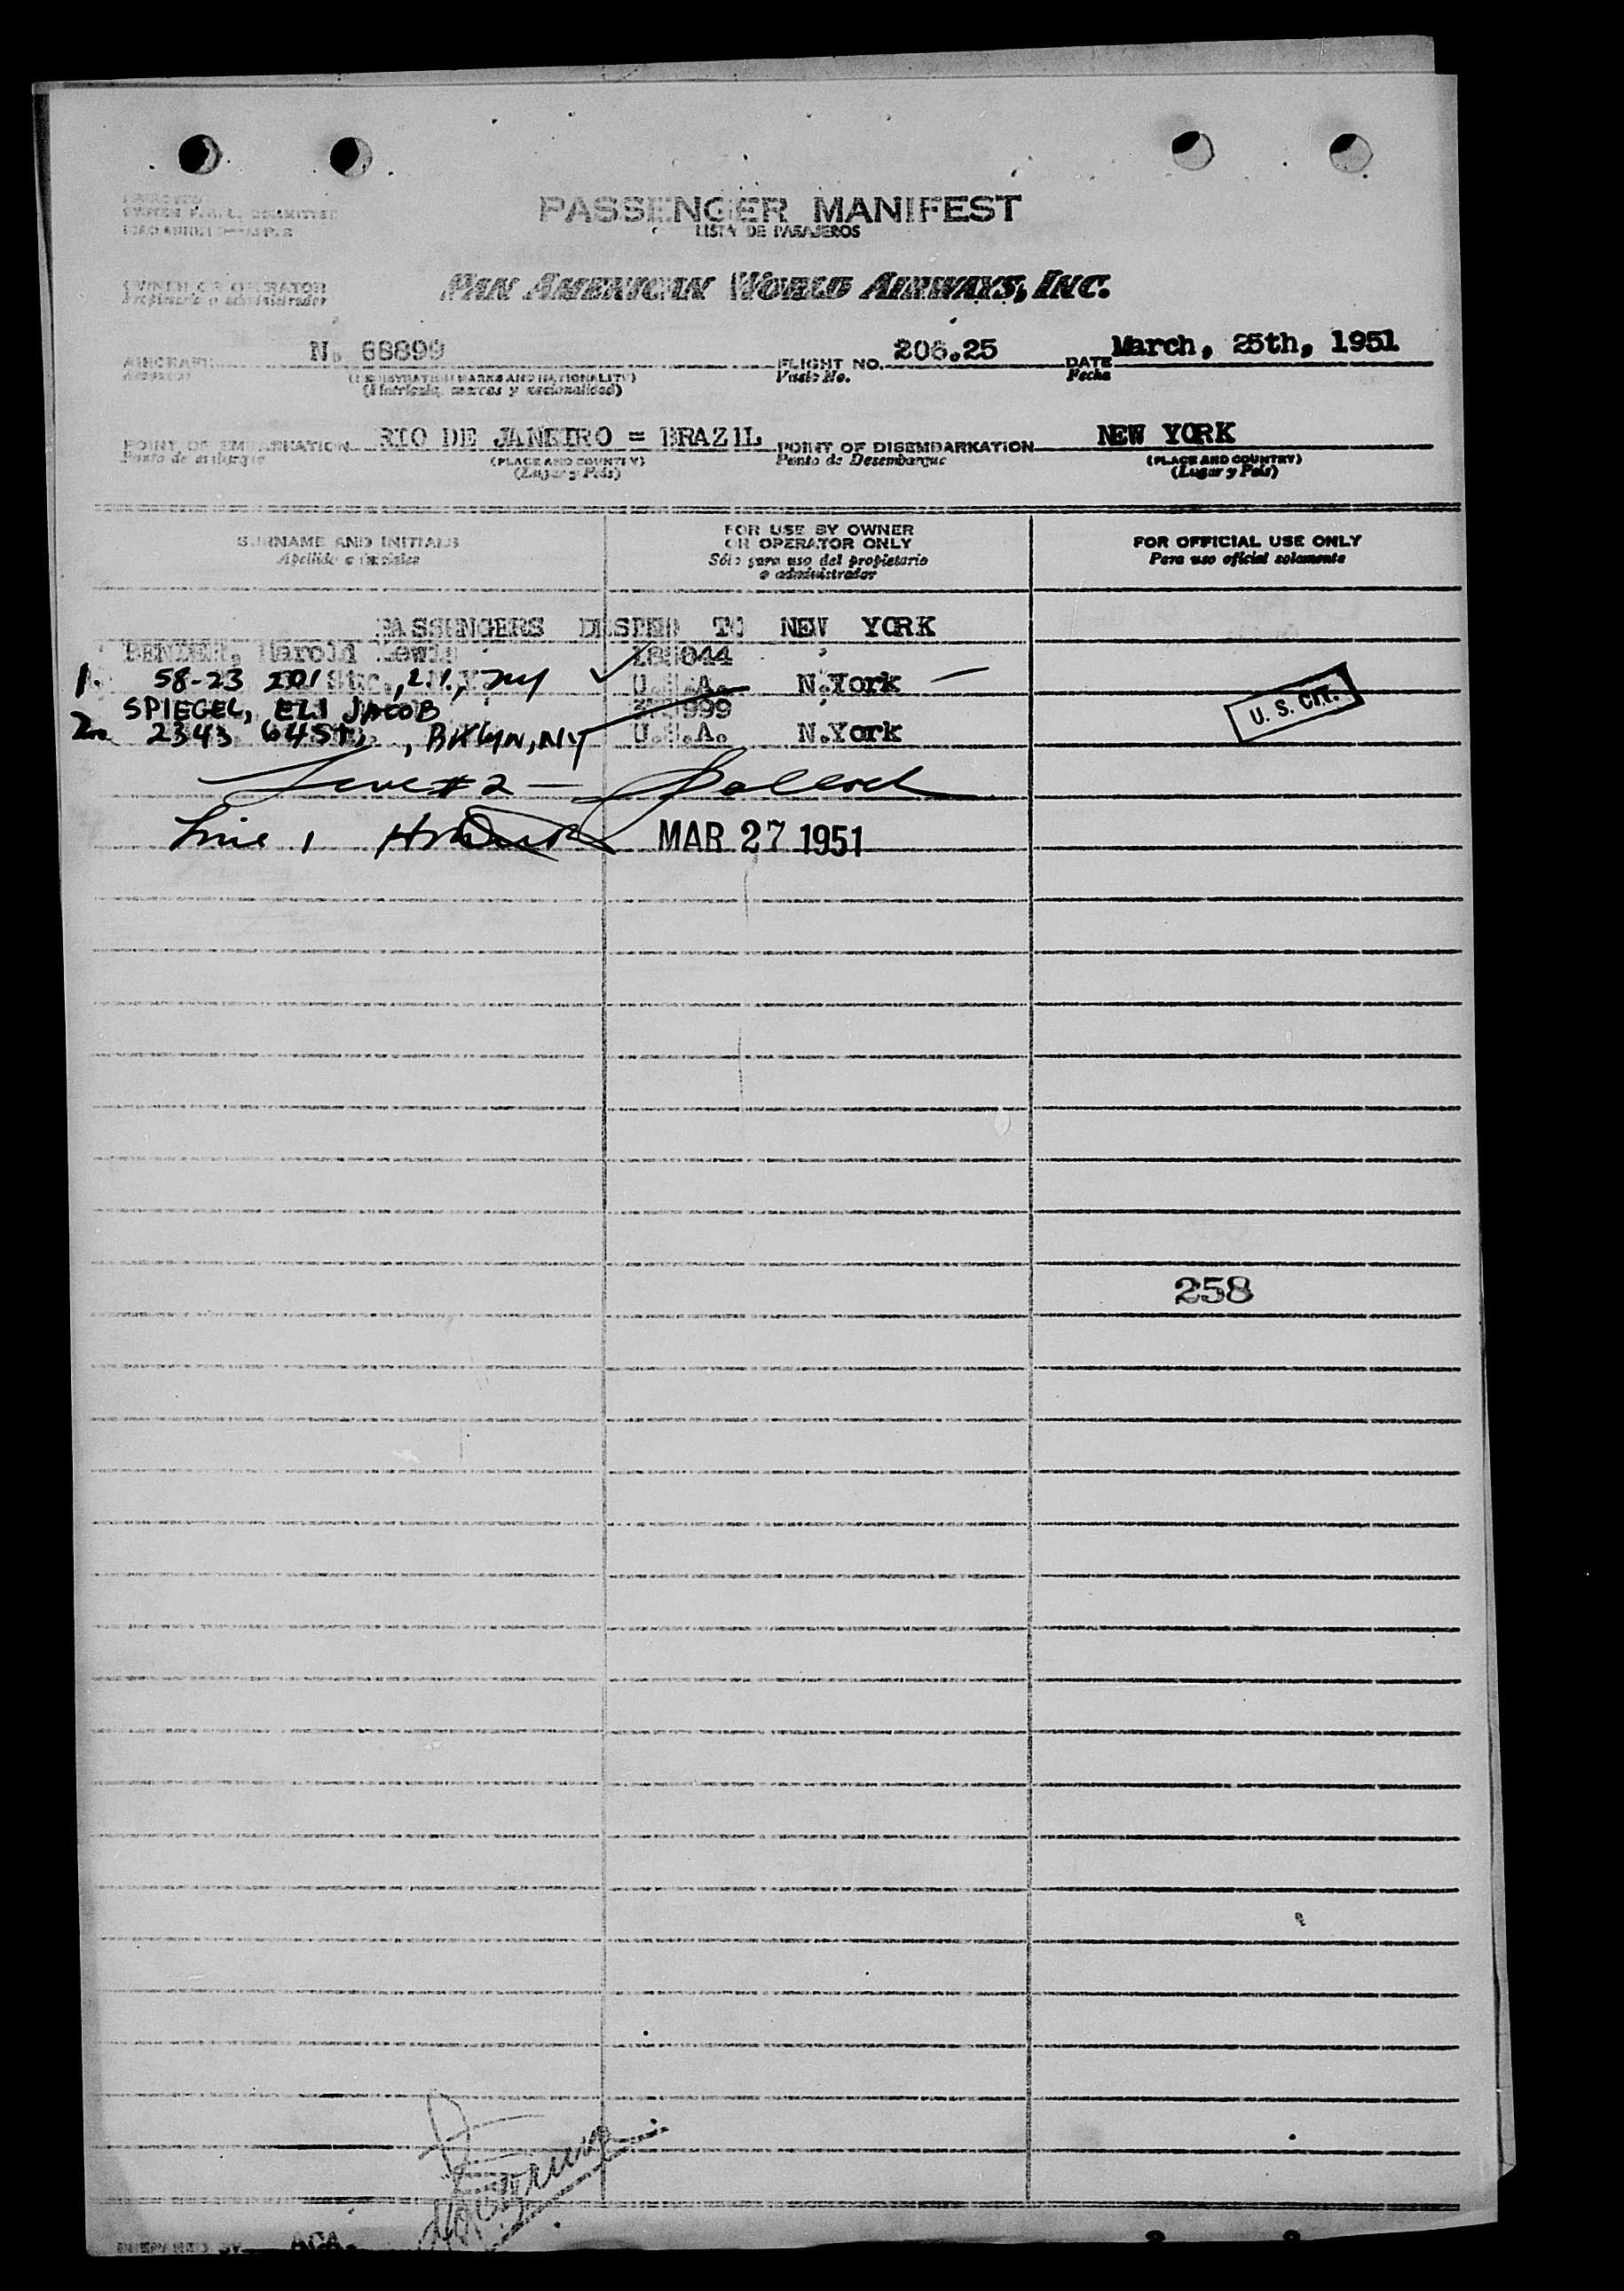 PASSENGER MANIFEST
LISTA DE PASAJEROS
OWNER OR OPERATOR
Propietario o administrador
PAN AMERICAN WORLD AIRWAYS, INC.
AIRCRAFT N. 68899 FLIGHT NO. 206.25 DATE March, 25th, 1951
(REGISTRATION MARKS AND NATIONALITY) Viaje No. Fecha
(Matricula, marcas y nacionalidad)
POINT OF EMBARKATION RIO DE JANEIRO = BRAZIL POINT OF DISEMBARKATION NEW YORK
Punto de embarque (PLACE AND COUNTRY) Punto de Desembarque (PLACE AND COUNTRY)
(Lugar y País) (Lugar y País)
SURNAME AND INITIALS
Apellido e iniciales
FOR USE BY OWNER
OR OPERATOR ONLY
Sólo para uso del propietario
o administrador
FOR OFFICIAL USE ONLY
Para uso oficial solamente
PASSENGERS DESTED TO NEW YORK
Harold Lewis
1. 58-23 201 St., L.I., NY U.S.A. N.York
SPIEGEL, ELI JACOB
2. 2343 64 St, BKLYN, NY U.S.A. N.York
U. S. CIT.
Line #2 —
Line 1 MAR 27 1951
258
PREPARED BY ACA